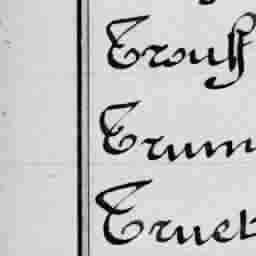 Trouss
Trum
Truet